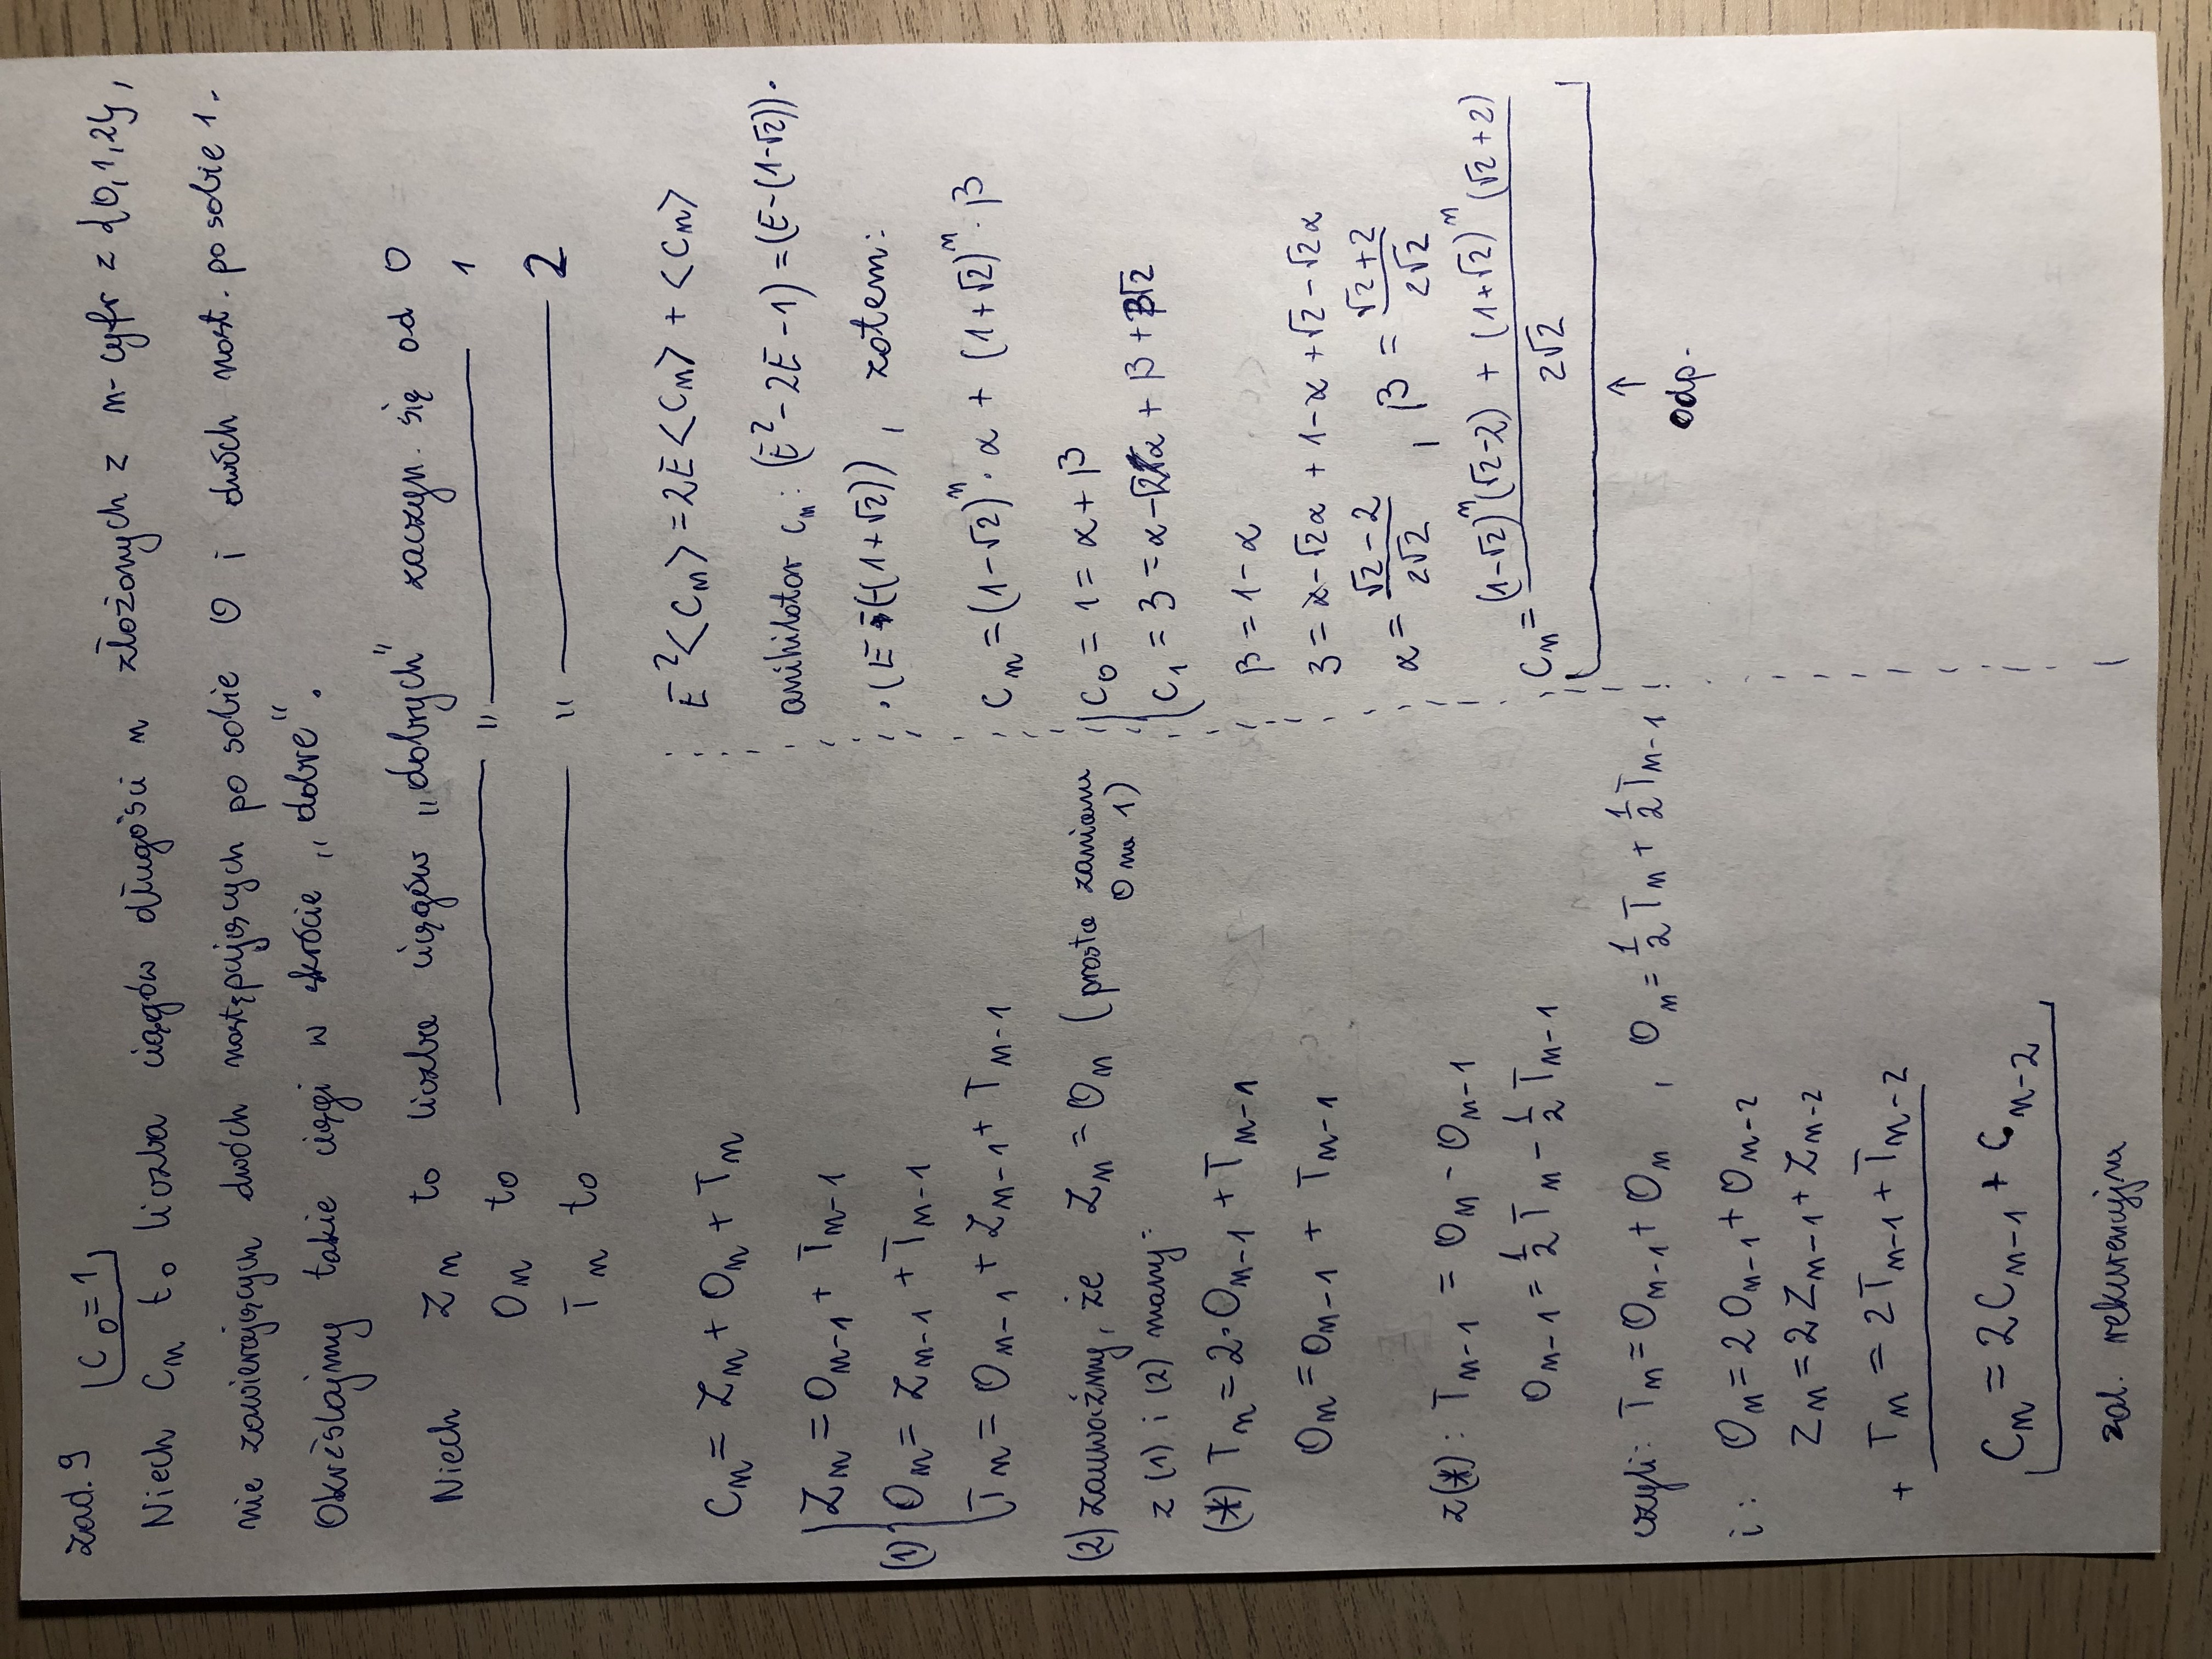 zad. 9
C₀ = 1
Niech Cₙ to liczba ciągów długości n złożonych z n-cyfr z {0,1,2},
nie zawierających dwóch następujących po sobie 0 i dwóch nast. po sobie 1.
Określajmy takie ciągi w skrócie „dobre”.
Niech Zₙ to liczba ciągów „dobrych” zaczyn. się od 0
Oₙ to —— " —— 1
Tₙ to —— " —— 2
Cₙ = Zₙ + Oₙ + Tₙ
(1) Zₙ = Oₙ₋₁ + Tₙ₋₁
Oₙ = Zₙ₋₁ + Tₙ₋₁
Tₙ = Oₙ₋₁ + Zₙ₋₁ + Tₙ₋₁
(2) zauważmy, że Zₙ = Oₙ (prosta zamiana
0 na 1)
z (1) i (2) mamy:
(*) Tₙ = 2·Oₙ₋₁ + Tₙ₋₁
Oₙ = Oₙ₋₁ + Tₙ₋₁
z(*): Tₙ₋₁ = Oₙ - Oₙ₋₁
Oₙ₋₁ = 1/2 Tₙ - 1/2 Tₙ₋₁
czyli: Tₙ = Oₙ₋₁ + Oₙ , Oₙ = 1/2 Tₙ + 1/2 Tₙ₋₁
i: Oₙ = 2Oₙ₋₁ + Oₙ₋₂
Zₙ = 2Zₙ₋₁ + Zₙ₋₂
+ Tₙ = 2Tₙ₋₁ + Tₙ₋₂
Cₙ = 2Cₙ₋₁ + Cₙ₋₂
zal. rekurencyjna
E²<Cₙ> = 2E<Cₙ> + <Cₙ>
anihilator cₙ: (E² - 2E - 1) = (E-(1-√2))·
·(E-(1+√2)), zatem:
Cₙ = (1-√2)ⁿ·α + (1+√2)ⁿ·β
C₀ = 1 = α + β
C₁ = 3 = α-√2α + β + β√2
β = 1-α
3 = α-√2α + 1-α + √2-√2α
α = (√2-2)/(2√2) , β = (√2+2)/(2√2)
Cₙ = ((1-√2)ⁿ(√2-2) + (1+√2)ⁿ(√2+2))/(2√2)
↑
odp.